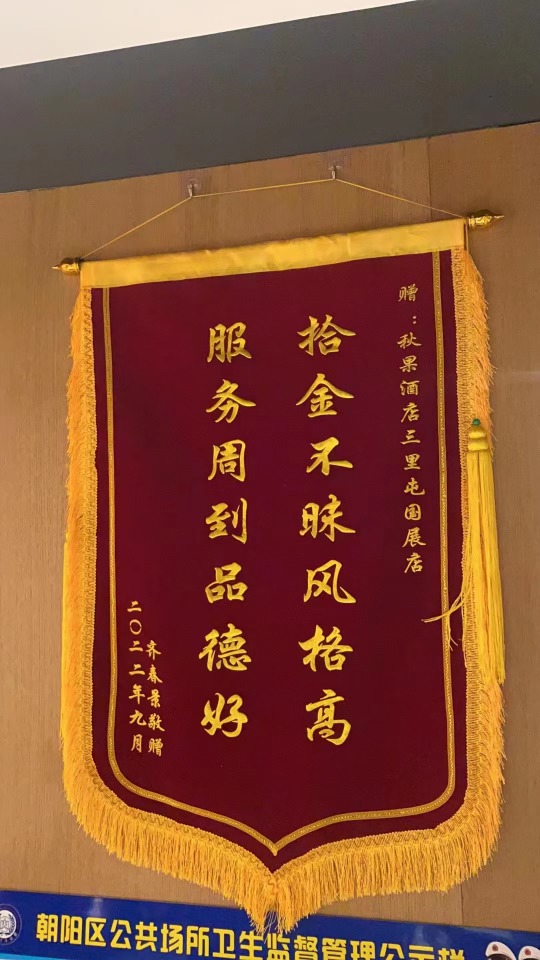 赠：秋果酒店三里屯国展店
拾金不昧风格高
服务周到品德好
齐春景敬赠
二〇二二年九月
朝阳区公共场所卫生监督管理公示栏